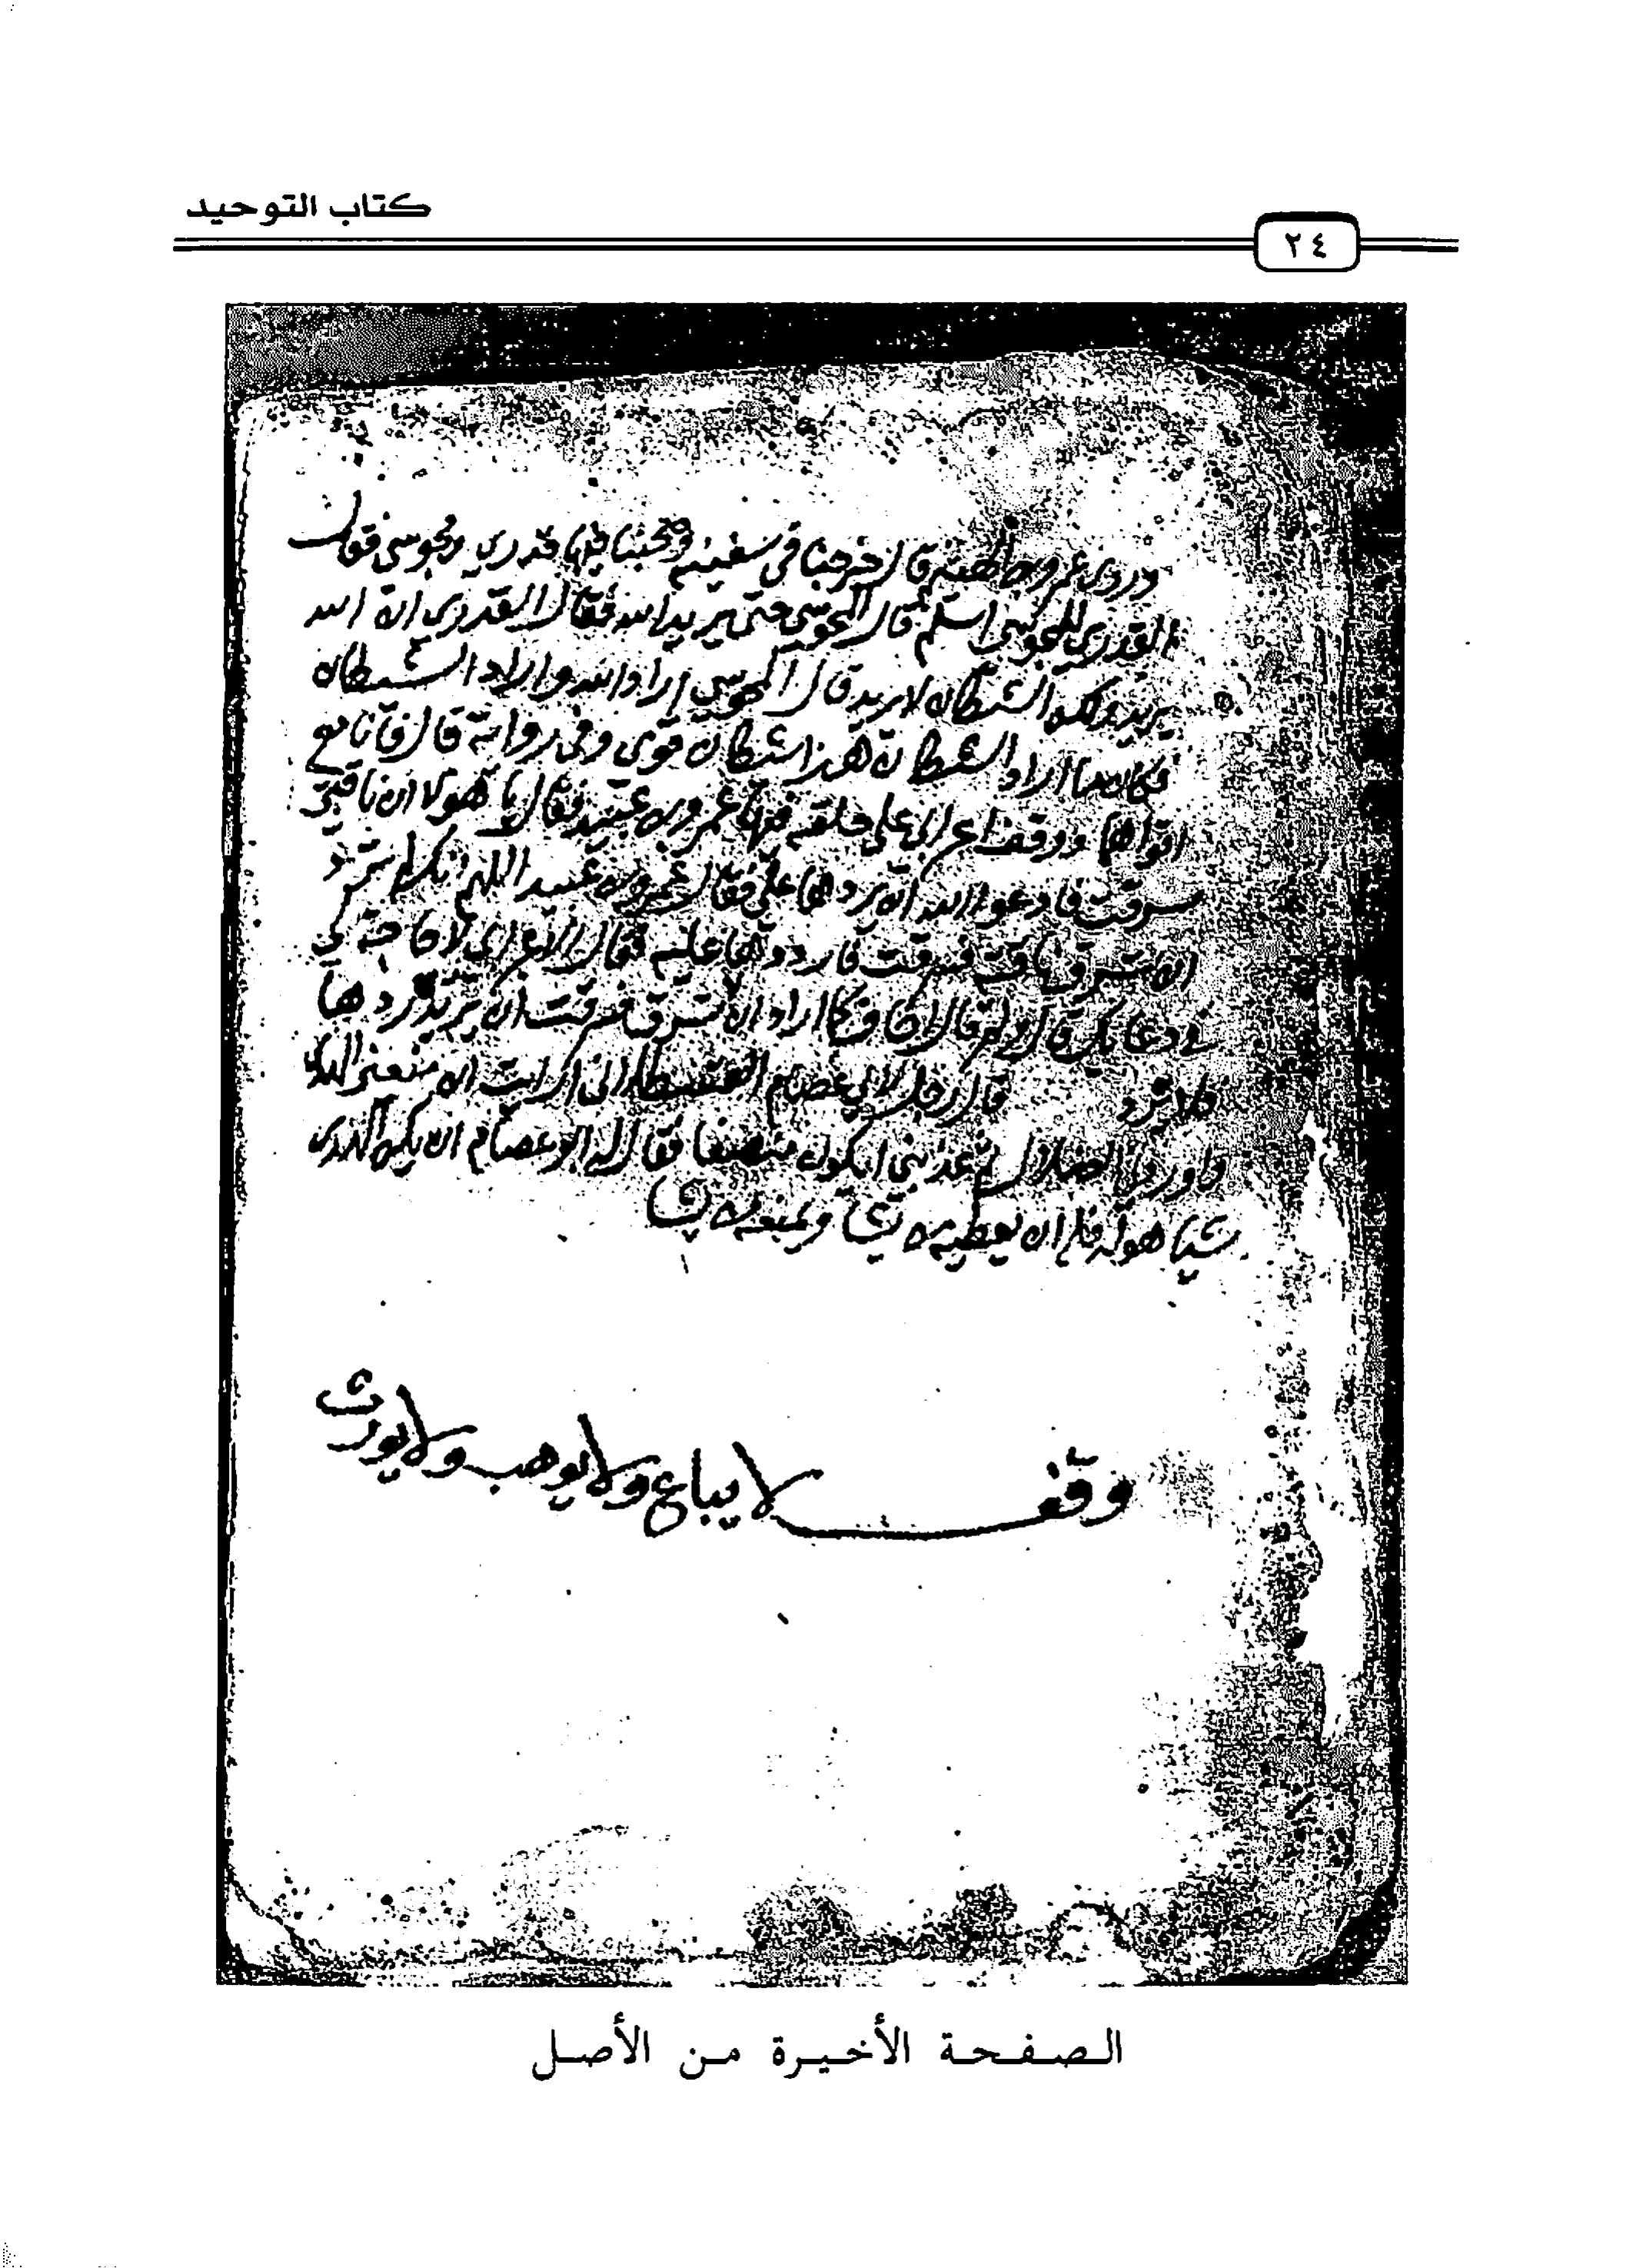 كتاب التوحيد
٢٤
وروى عمرو بن الهيثم قال خرجنا في سفينة وصحبنا فيها قدري ومجوسي فقال
القدري للمجوسي اسلم قال المجوسي حتى يريد الله فقال القدري ان الله
يريد ولكن الشيطان لا يريد قال المجوسي اراد الله واراد الشيطان
فكان ما اراد الشيطان هذا شيطان قوي وفي رواية قال فانا مع
اقواهما ووقف اعرابي على حلقة فيها عمرو بن عبيد فقال يا هولاء ان ناقتي
سرقت فادعوا الله ان يردها علي فقال عمرو بن عبيد اللهم انك لم ترد
ان تسرق ناقته فسرقت فارددها عليه فقال الاعرابي لا حاجة لي
في دعائك قال ولم قال اخاف كما اراد ان لا تسرق فسرقت ان يريد ردها
فلا ترد قال رجل لابي عصام القسطلاني ارايت ان منعني الهدى
واوردني الضلال ثم عذبني ايكون منصفا فقال له ابو عصام ان يكن الهدى
شيا هو له فله ان يعطيه من يشا ويمنعه من يشا
وقف لا يباع ولا يوهب ولا يورث
الصفحة الأخيرة من الأصل